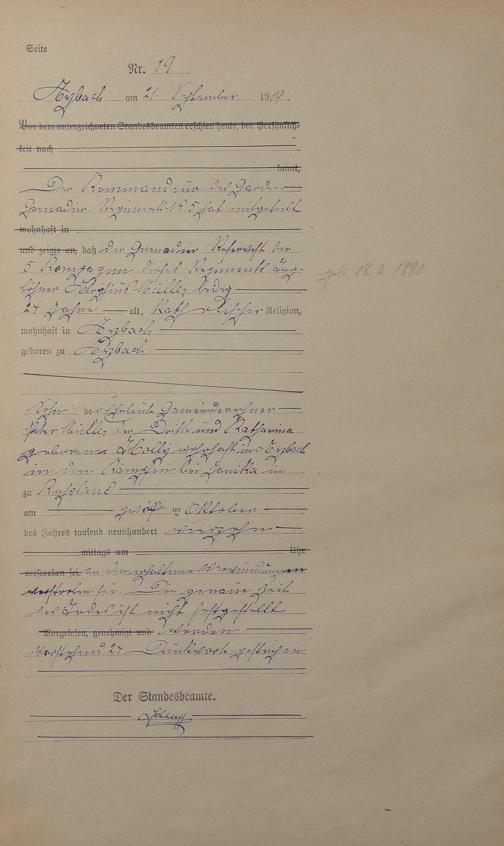 Seite
Nr. 19
Aybach am 21. September 1919
Vor dem unterzeichneten Standesbeamten erschien heute, der Persönlich-
keit nach
kannt,
Der Kommandeur des Garde
Grenadier Regiments No 5 hat mitgeteilt
wohnhaft in
und zeigte an, daß der Grenadier Reservist der
5 Kompagnie dieses Regiments Tag-
löhner Müller ledig
24 Jahre alt, katholischer Religion,
wohnhaft in Aybach
geboren zu Aybach
geb 18.2 1890
Sohn der Eheleute Gemeinderechner
Peter Müller der Dritte und Katharina
geborene wohnhaft in Aybach
in den Kämpfen bei in
zu Russland
am zwölf ten Oktober
des Jahres tausend neunhundert vierzehn
mittags um Uhr
verstorben sei. an den erhaltenen Verwundungen
verstorben sei. Die genaue Zeit
des Todes ist nicht festgestellt
Vorgelesen, genehmigt und worden
Vorstehend 24 Druckworte gestrichen
Der Standesbeamte.